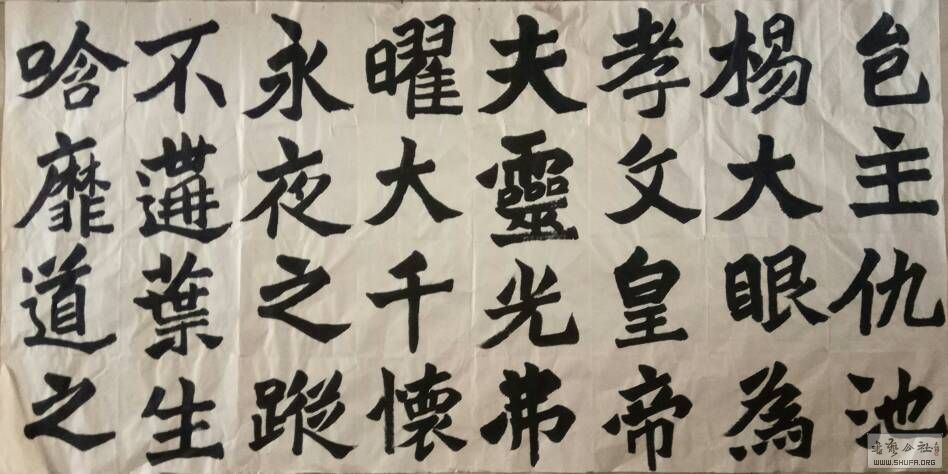 邑主仇池
楊大眼為
孝文皇帝
夫靈光弗
曜大千懷
永夜之蹤
不遘葉生
唅靡道之
書藝公社
WWW.SHUFA.ORG